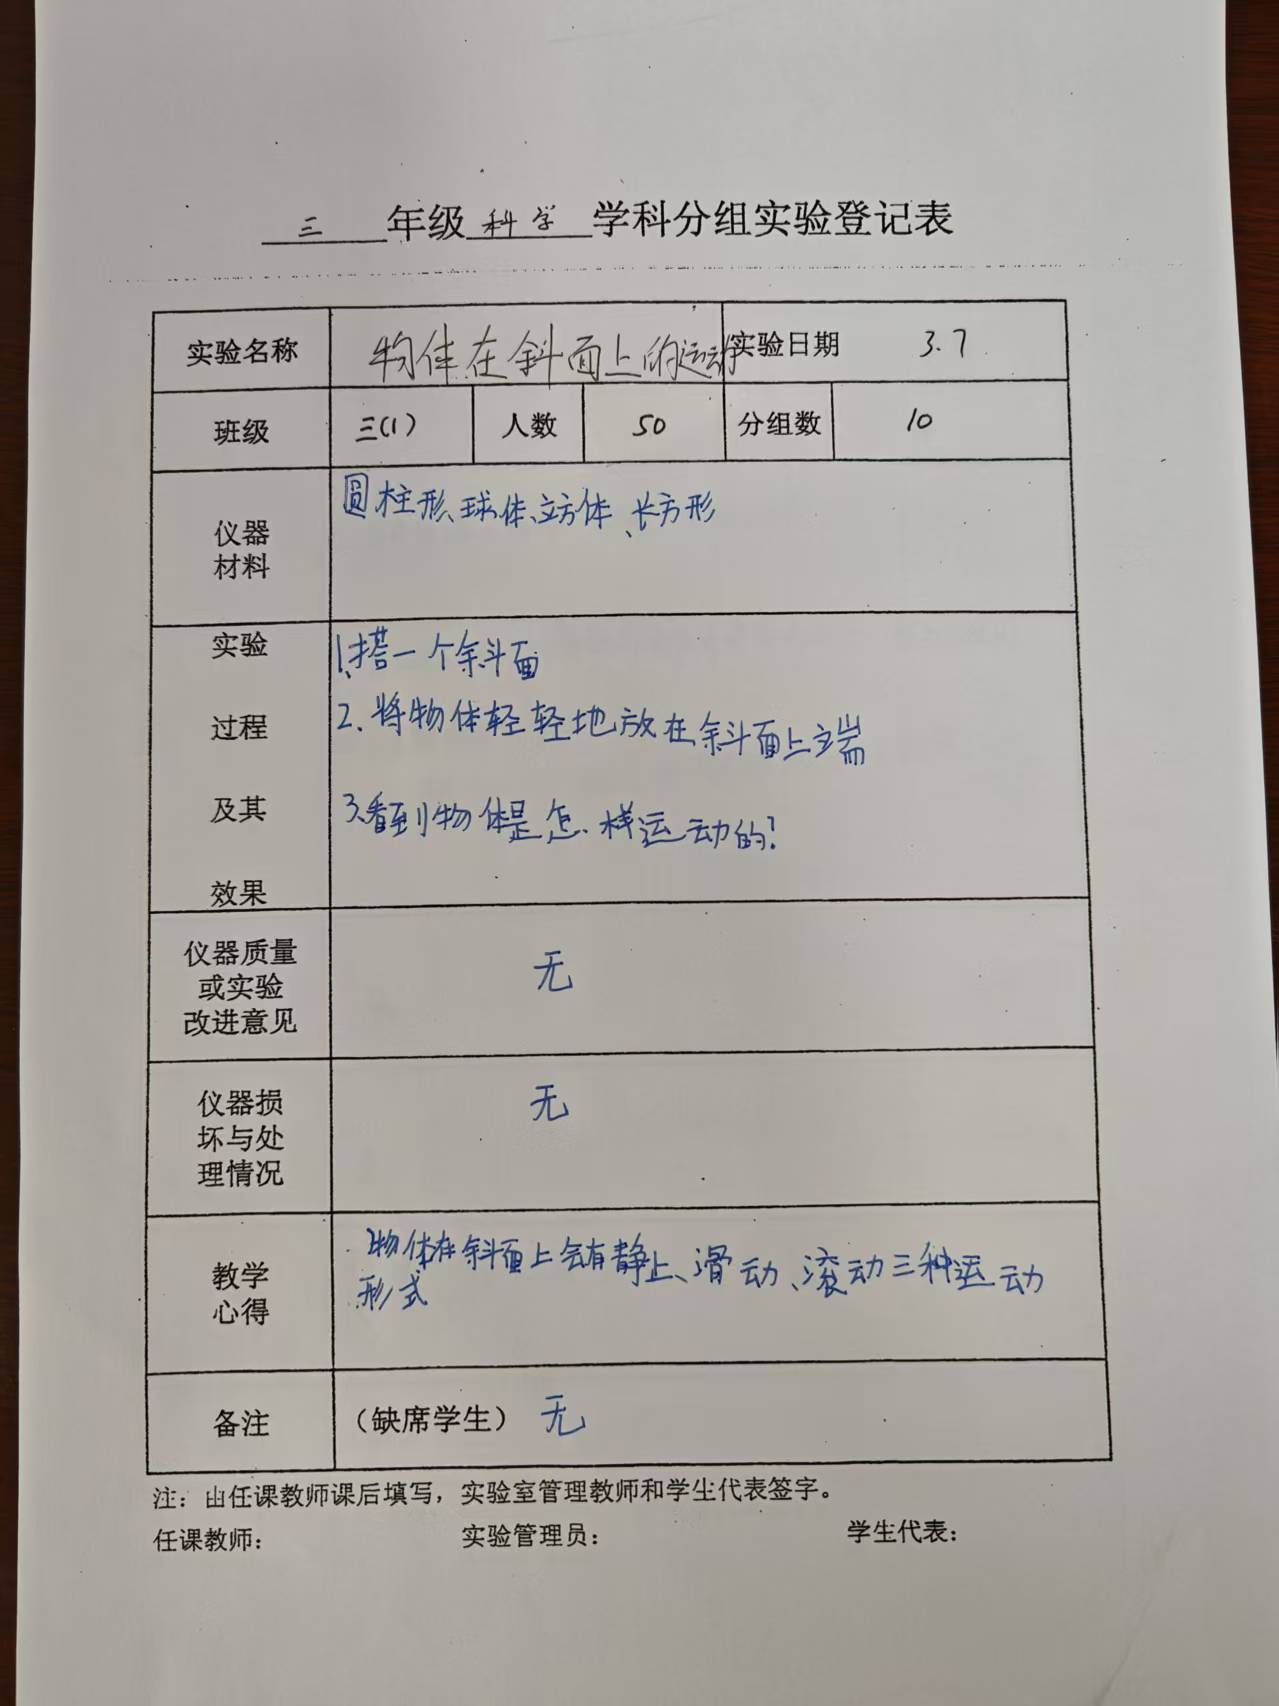 三 年级 科学 学科分组实验登记表
实验名称 物体在斜面上的运动 实验日期 3.7
班级 三(1) 人数 50 分组数 10
仪器
材料
圆柱形、球体、立方体、长方形
实验
过程
及其
效果
1、搭一个斜面
2.将物体轻轻地放在斜面上端
3、看到物体是怎样运动的?
仪器质量
或实验
改进意见
无
仪器损
坏与处
理情况
无
教学
心得
物体在斜面上会有静止、滑动、滚动三种运动
形式
备注 (缺席学生) 无
注：由任课教师课后填写，实验室管理教师和学生代表签字。
任课教师： 实验管理员： 学生代表：